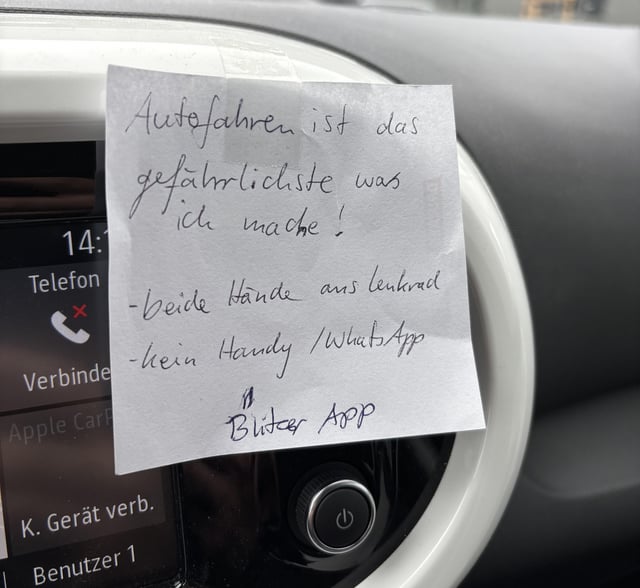 Autofahren ist das
gefährlichste was
ich mache!
- beide Hände ans Lenkrad
- kein Handy / WhatsApp
Blitzer App
14:1
Telefon
Verbinde
Apple CarP
K. Gerät verb.
Benutzer 1